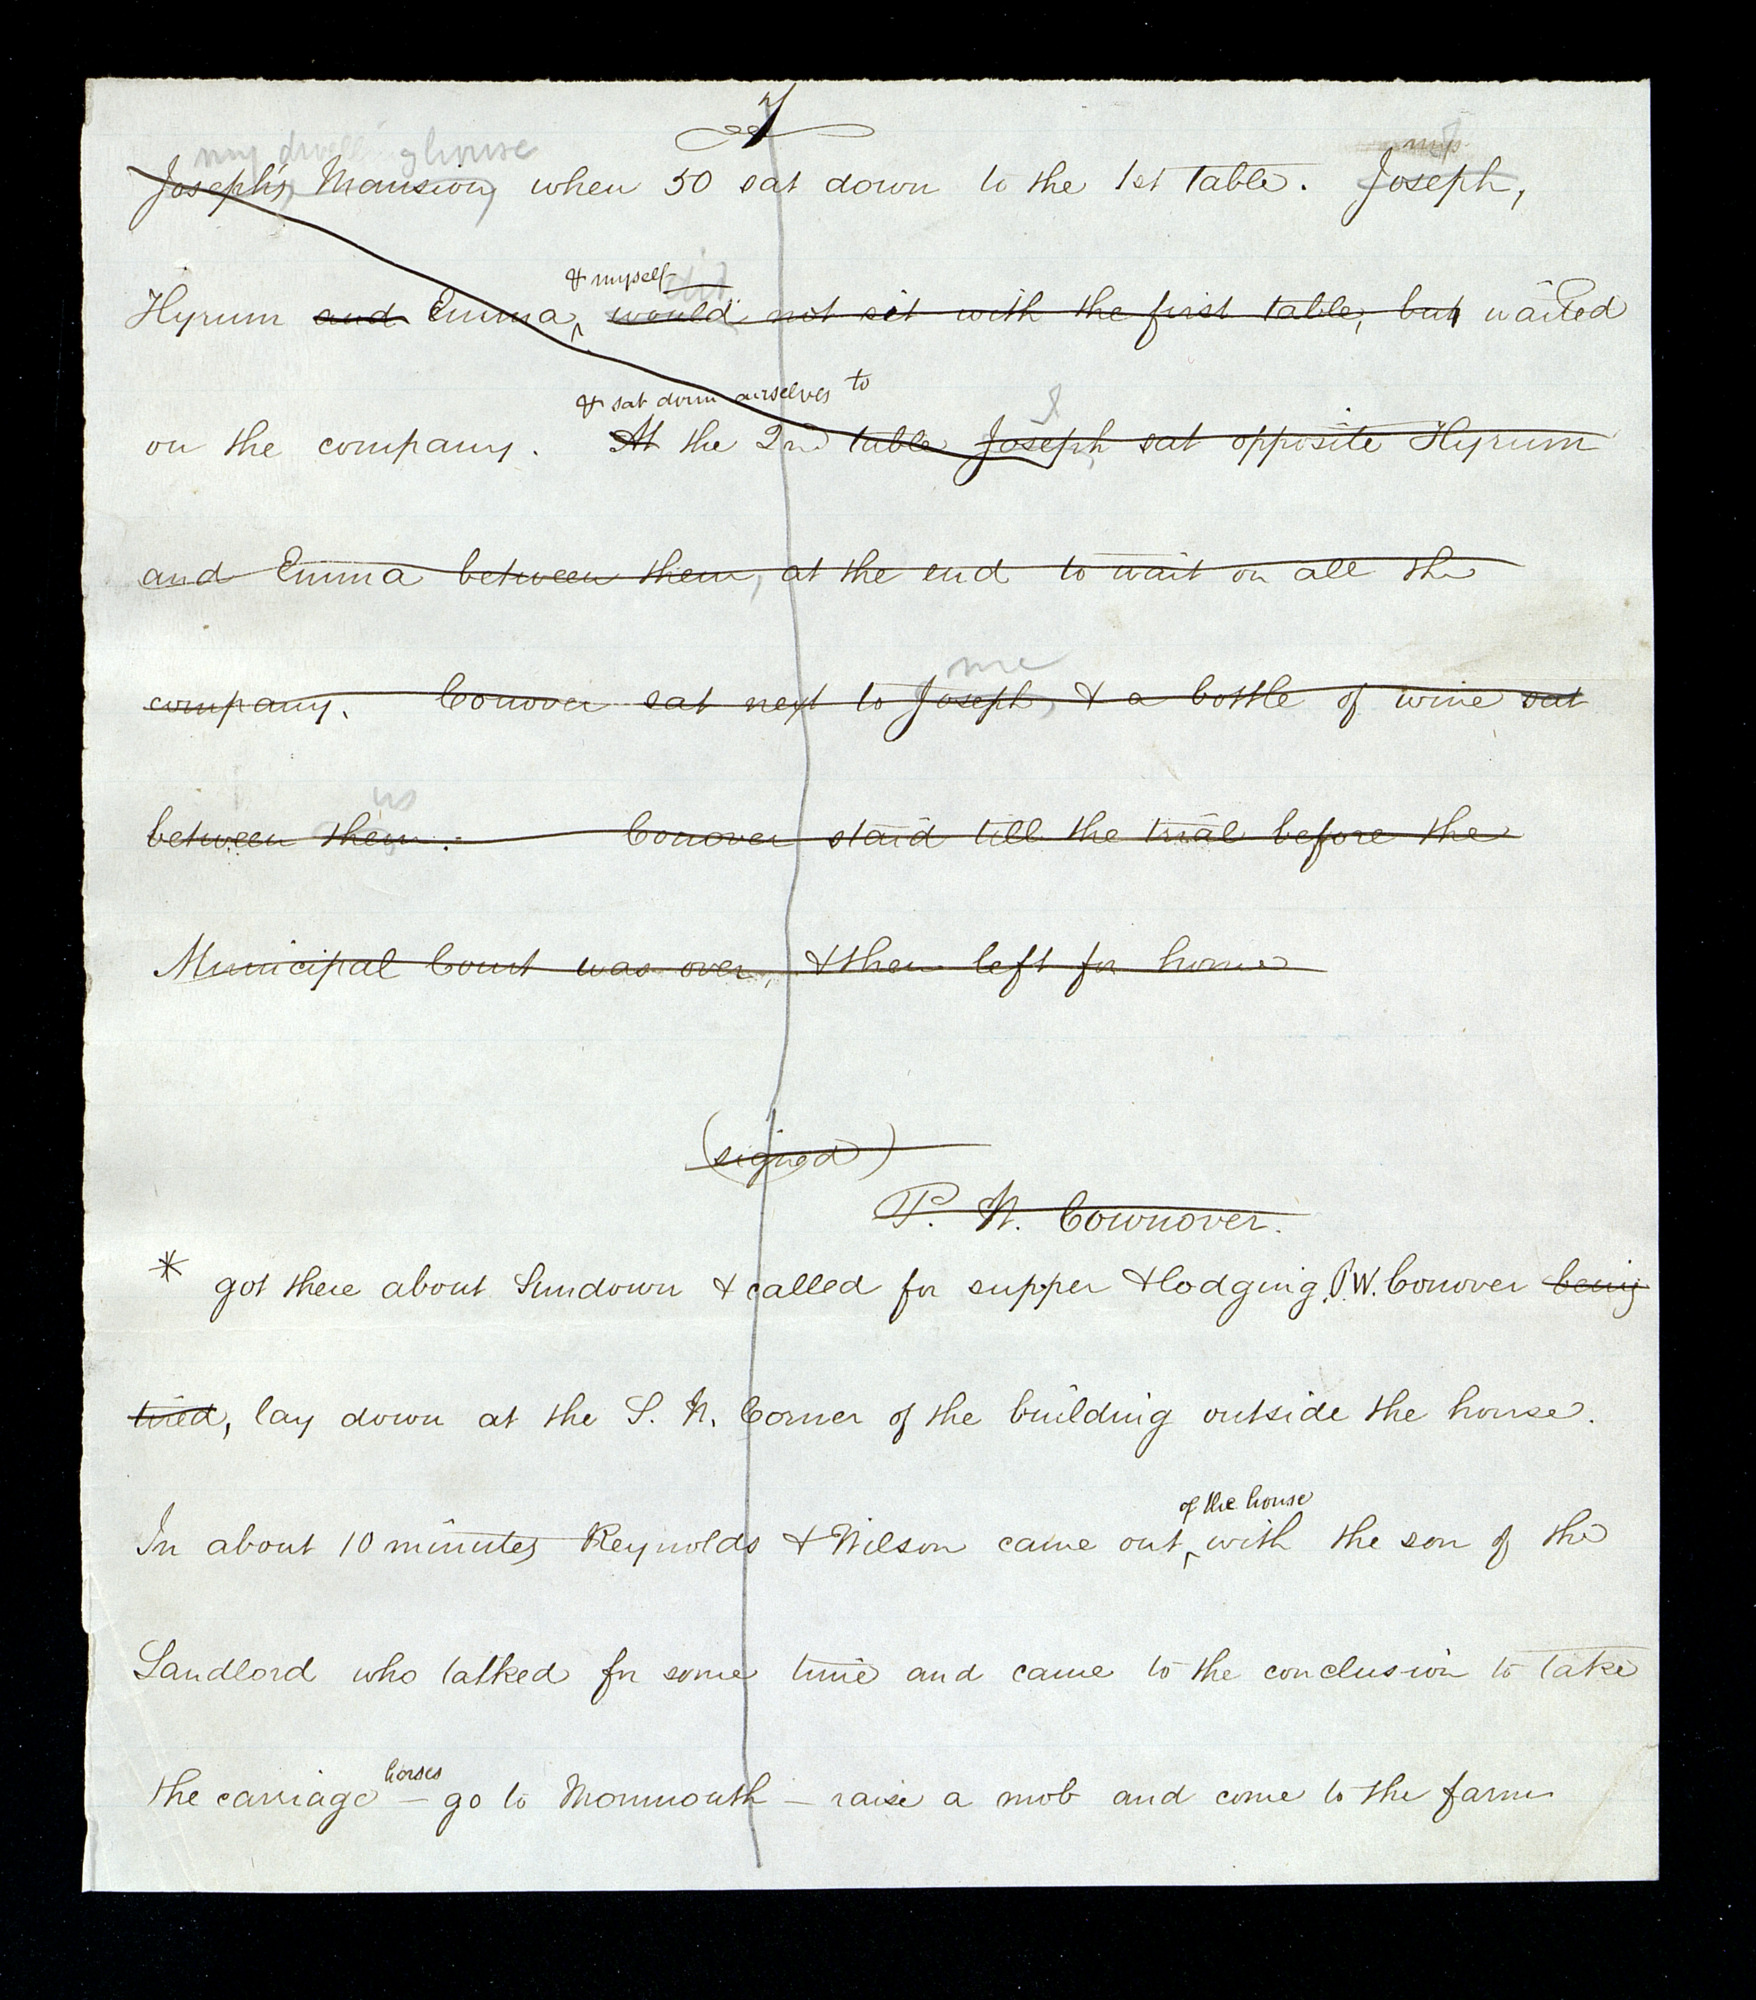 7
my dwelling house
Joseph's Mansion, when 50 sat down to the 1st table. Joseph,
& myself did
Hyrum and Emma, would not sit with the first table, but waited
& sat down ourselves to
I
on the company. At the 2nd table Joseph sat opposite Hyrum
and Emma between them, at the end to wait on all the
me
company. Conover sat next to Joseph, & a bottle of wine sat
us
between them. Conover staid till the trial before the
Municipal Court was over, & then left for home
(signed)
P. W. Cownover.
* got there about Sundown & called for supper & lodging, P.W. Conover being
tired, lay down at the S. W. Corner of the building outside the house.
of the house
In about 10 minutes Reynolds & Wilson came out ‸ with the son of the
Landlord who talked for some time and came to the conclusion to take
horses
the carriage – go to Monmouth – raise a mob and come to the farm